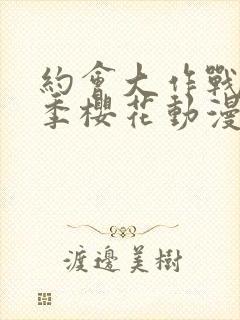 約會大作戰
季櫻花動漫
渡邊美樹